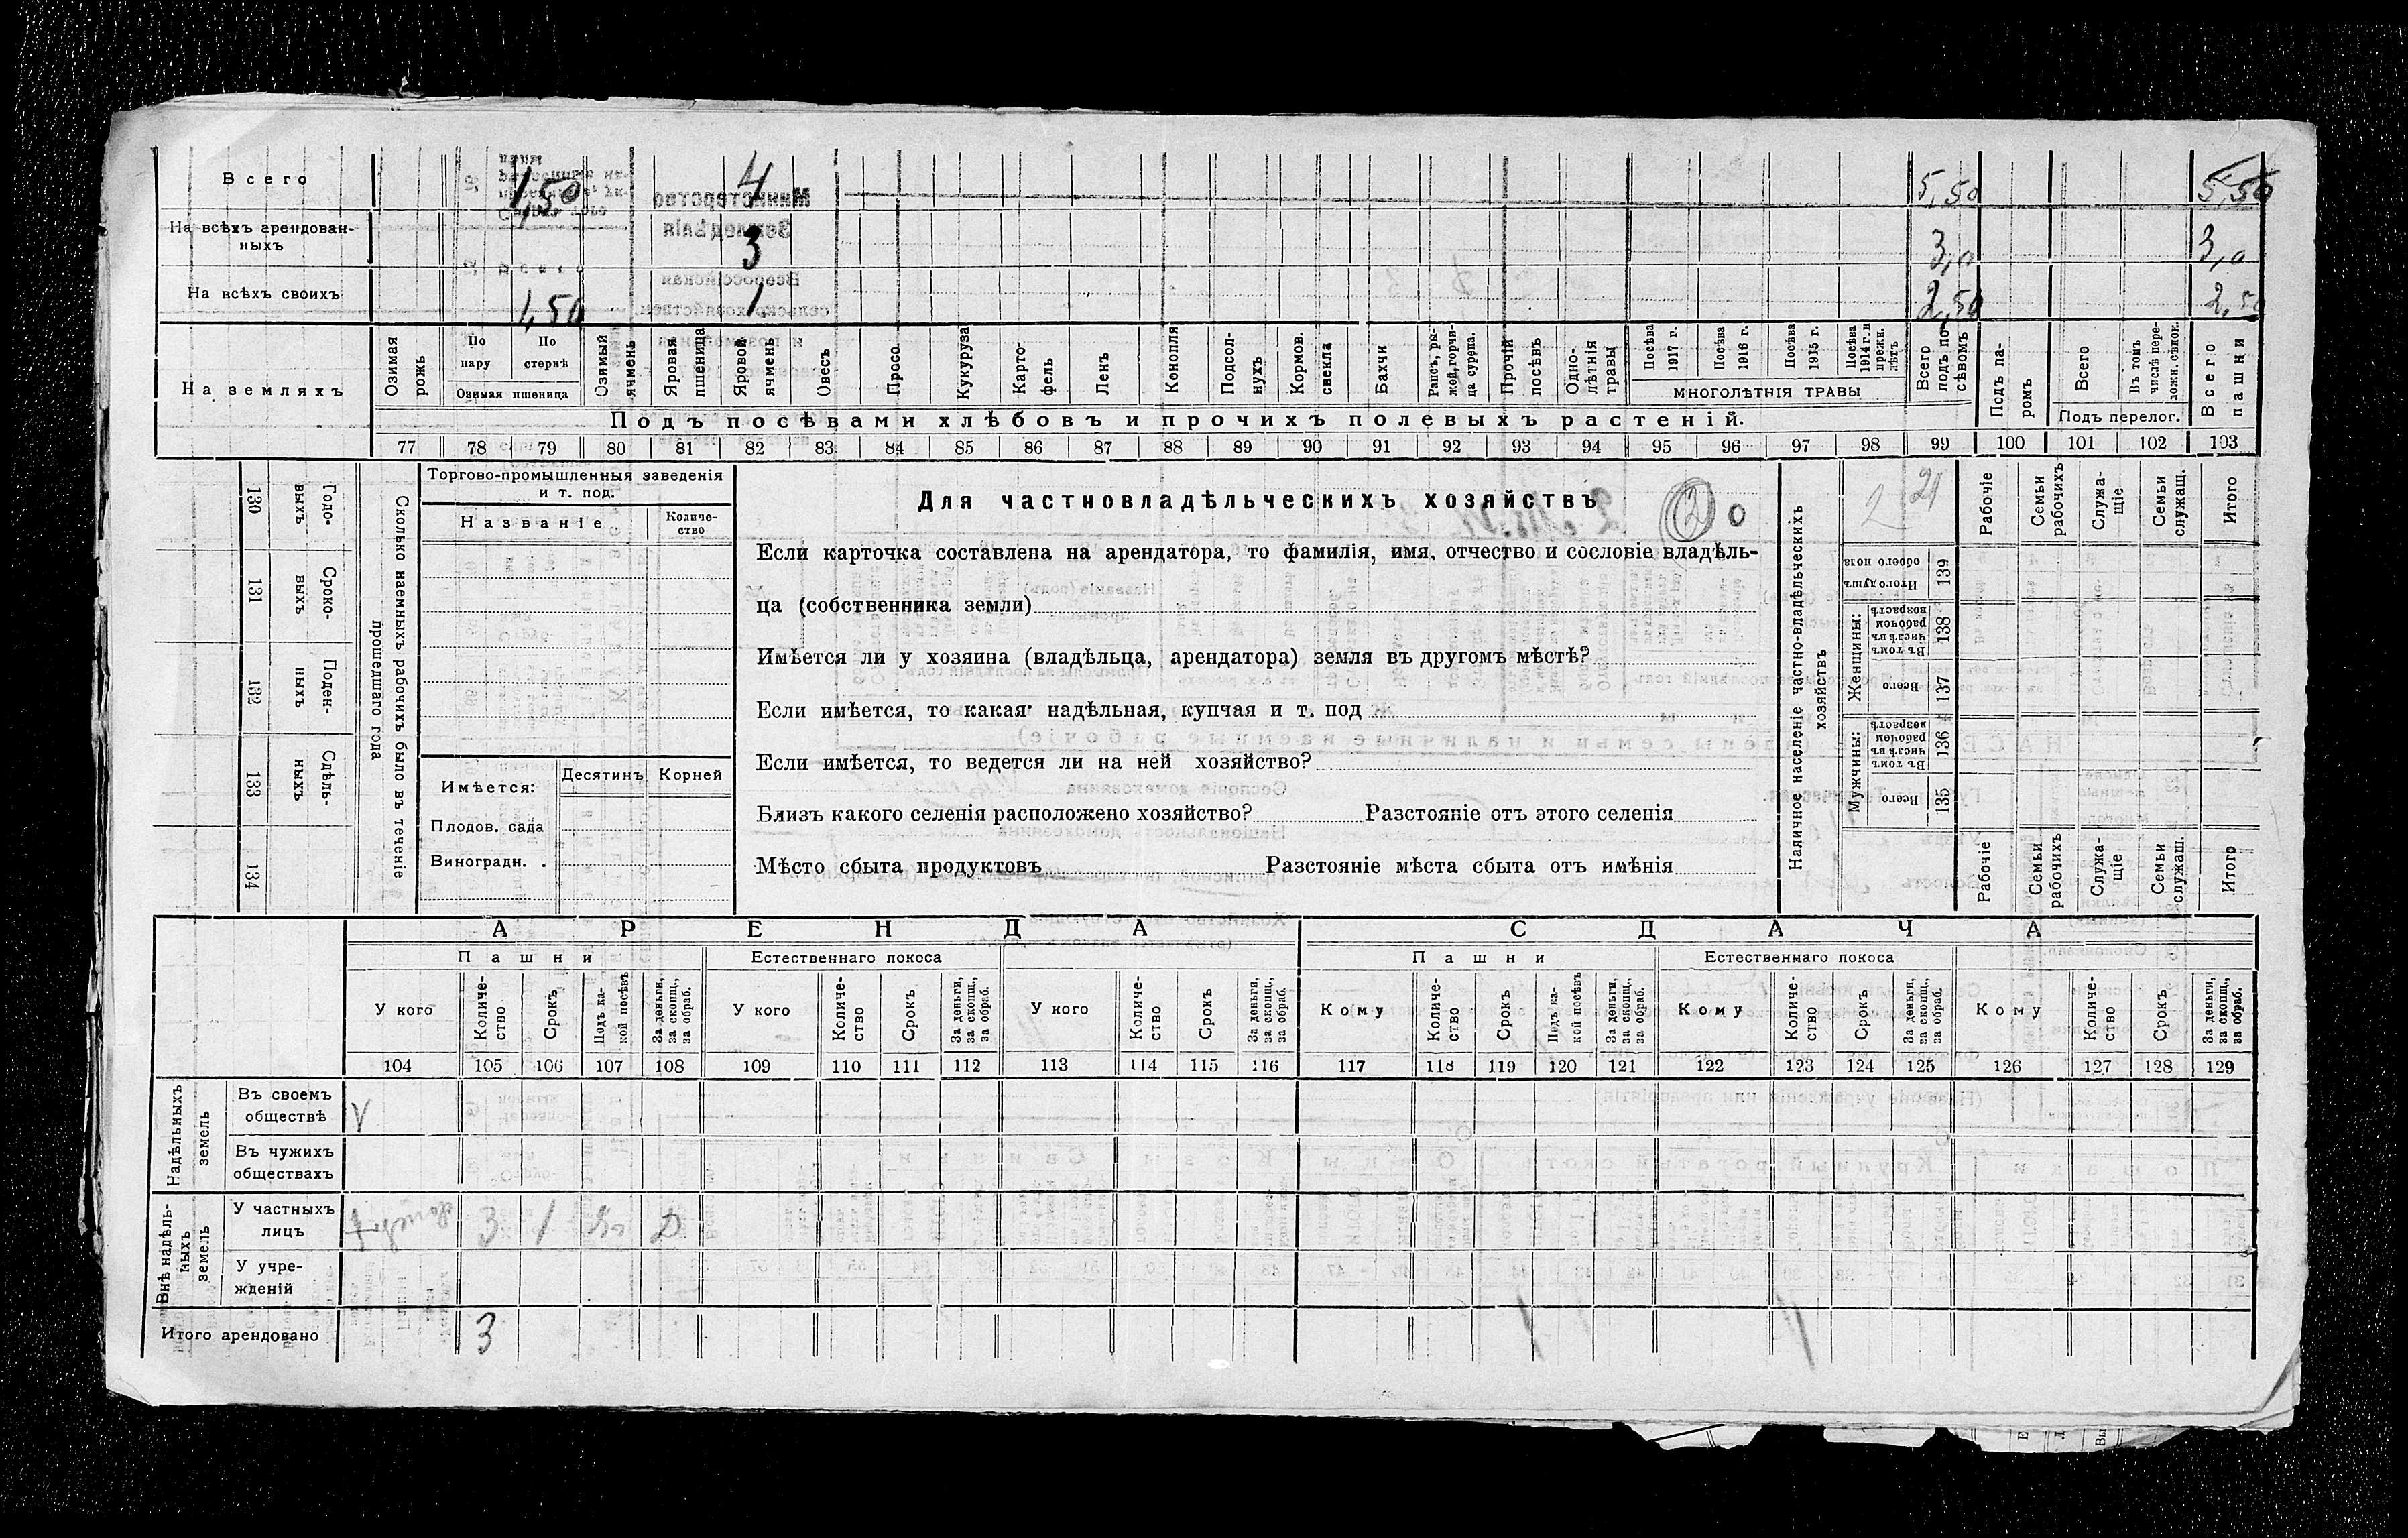 Всего 1,50 4 5,50 5,50
На всѣхъ арендован-
ныхъ 3 3,0 3,0
На всѣхъ своихъ 1,50 1 2,50 2,50
На земляхъ
Озимая рожь
По пару
По стернѣ
Озимая пшеница
Озимый ячмень
Яровая пшеница
Яровой ячмень
Овесъ
Просо
Кукуруза
Карто-
фель
Ленъ
Конопля
Подсол-
нухъ
Кормов.
свекла
Бахчи
Рапсъ, ры-
жей, горчи-
ца сурепа.
Прочій
посѣвъ
Одно-
лѣтнія
травы
Посѣва
1917 г.
Посѣва
1916 г.
Посѣва
1915 г.
Посѣва
1914 г. и
прежн.
лѣтъ
МНОГОЛѢТНІЯ ТРАВЫ
Всего
подъ по-
сѣвомъ
Подъ па-
ромъ
Всего
Въ томъ
числѣ пере-
ложн. сѣнок.
Подъ перелог.
Всего
пашни
Подъ посѣвами хлѣбовъ и прочихъ полевыхъ растеній.
77 78 79 80 81 82 83 84 85 86 87 88 89 90 91 92 93 94 95 96 97 98 99 100 101 102 103
130 131 132 133 134
Годо-
выхъ
Сроко-
выхъ
Поден-
ныхъ
Сдѣль-
ныхъ
Сколько наемныхъ рабочихъ было въ теченіе
прошедшаго года
Торгово-промышленныя заведенія
и т. под.
Названіе
Количе-
ство
Имѣется:
Десятинъ Корней
Плодов. сада
Виноградн. .
Для частновладѣльческихъ хозяйствъ 2 0
Если карточка составлена на арендатора, то фамилія, имя, отчество и сословіе владѣль-
ца (собственника земли)
Имѣется ли у хозяина (владѣльца, арендатора) земля въ другомъ мѣстѣ?
Если имѣется, то какая· надѣльная, купчая и т. под
Если имѣется, то ведется ли на ней хозяйство?
Близъ какого селенія расположено хозяйство? Разстояніе отъ этого селенія
Мѣсто сбыта продуктовъ Разстояніе мѣста сбыта отъ имѣнія
Наличное населеніе частно-владѣльческихъ
хозяйствъ
Итого душъ
обоего пола
139
Женщины:
Въ томъ
числѣ въ
рабочемъ
возрастѣ
138
Всего
137
Мужчины:
Въ томъ
числѣ въ
рабочемъ
возрастѣ
136
Всего
135
Рабочіе
Семьи
рабочихъ
Служа-
щіе
Семьи
служащ.
Итого
Рабочіе
Семьи
рабочихъ
Служа-
щіе
Семьи
служащ.
Итого
АРЕНДА СДАЧА
Пашни Естественнаго покоса Пашни Естественнаго покоса
У кого
Количе-
ство
Срокъ
Подъ ка-
кой посѣвъ
За деньги,
за скопщ.,
за обраб.
У кого
Количе-
ство
Срокъ
За деньги,
за скопщ.,
за обраб.
У кого
Количе-
ство
Срокъ
За деньги,
за скопщ.,
за обраб.
Кому
Количе-
ство
Срокъ
Подъ ка-
кой посѣвъ
За деньги,
за скопщ.,
за обраб.
Кому
Количе-
ство
Срокъ
За деньги,
за скопщ.,
за обраб.
Кому
Количе-
ство
Срокъ
За деньги,
за скопщ.,
за обраб.
104 105 106 107 108 109 110 111 112 113 114 115 116 117 118 119 120 121 122 123 124 125 126 127 128 129
Надѣльныхъ
земель
Въ своемъ
обществѣ
Въ чужихъ
обществахъ
Внѣ надѣль-
ныхъ
земель
У частныхъ
лицъ 3 1
У учре-
жденій
Итого арендовано 3